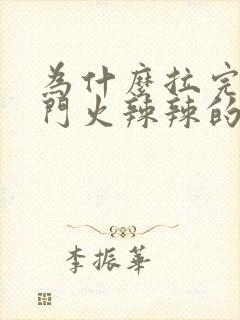 為什麼拉完
門火辣辣的
李振華